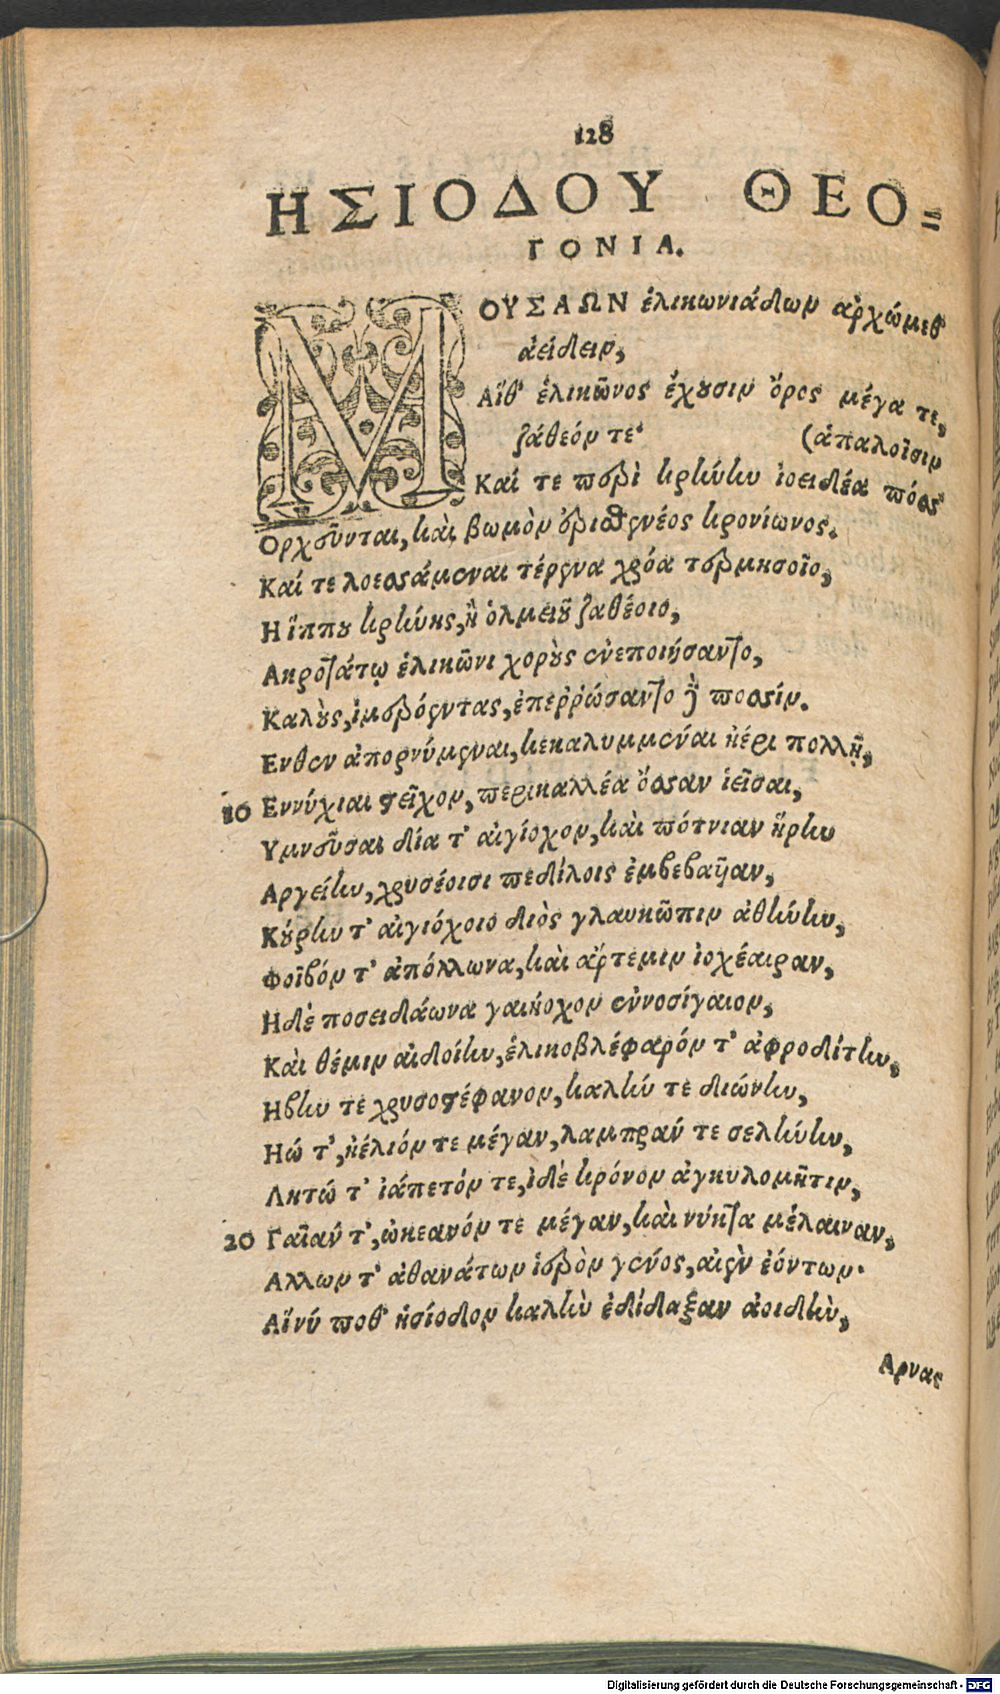 128
ΗΣΙΟΔΟΥ ΘΕΟ=
ΓΟΝΙΑ.
ΜΟΥΣΑΩΝ ἑλικωνιάδων ἀρχώμεθ'
ἀείδειν,
Αἵθ' ἑλικῶνος ἔχουσιν ὄρος μέγα τε,
ζάθεόν τε·
(ἁπαλοῖσιν
Καί τε περὶ κρήνην ἰοειδέα πόσσ'
Ορχοῦνται, καὶ βωμὸν ἐρισθενέος κρονίωνος.
Καί τε λοεσσάμεναι τέρενα χρόα τερμησοῖο,
Η ἵππου κρήνης, ἢ ὀλμειοῦ ζαθέοιο,
Ακροτάτῳ ἑλικῶνι χοροὺς ἐνεποιήσαντο,
Καλοὺς, ἱμερόεντας, ἐπερρώσαντο δὲ ποσσίν.
Ενθεν ἀπορνύμεναι, κεκαλυμμέναι ἠέρι πολλῇ,
10 Εννύχιαι στεῖχον, περικαλλέα ὄσσαν ἱεῖσαι,
Υμνοῦσαι δία τ' αἰγίοχον, καὶ πότνιαν ἥρην
Αργείην, χρυσέοισι πεδίλοις ἐμβεβαυῖαν,
Κούρην τ' αἰγιόχοιο διὸς γλαυκῶπιν ἀθήνην,
Φοῖβόν τ' ἀπόλλωνα, καὶ ἄρτεμιν ἰοχέαιραν,
Ηδὲ ποσειδάωνα γαιήοχον ἐννοσίγαιον,
Καὶ θέμιν αἰδοίην, ἑλικοβλέφαρόν τ' ἀφροδίτην,
Ηβην τε χρυσοστέφανον, καλήν τε διώνην,
Ηώ τ', ἠέλιόν τε μέγαν, λαμπράν τε σελήνην,
Λητώ τ' ἰάπετόν τε, ἰδὲ κρόνον ἀγκυλομῆτιν,
20 Γαῖαν τ', ὠκεανόν τε μέγαν, καὶ νύκτα μέλαιναν,
Αλλων τ' ἀθανάτων ἱερὸν γένος, αἰὲν ἐόντων·
Αἵ νύ ποθ' ἡσίοδον καλὴν ἐδίδαξαν ἀοιδὴν,
Αρνας
Digitalisierung gefördert durch die Deutsche Forschungsgemeinschaft - DFG